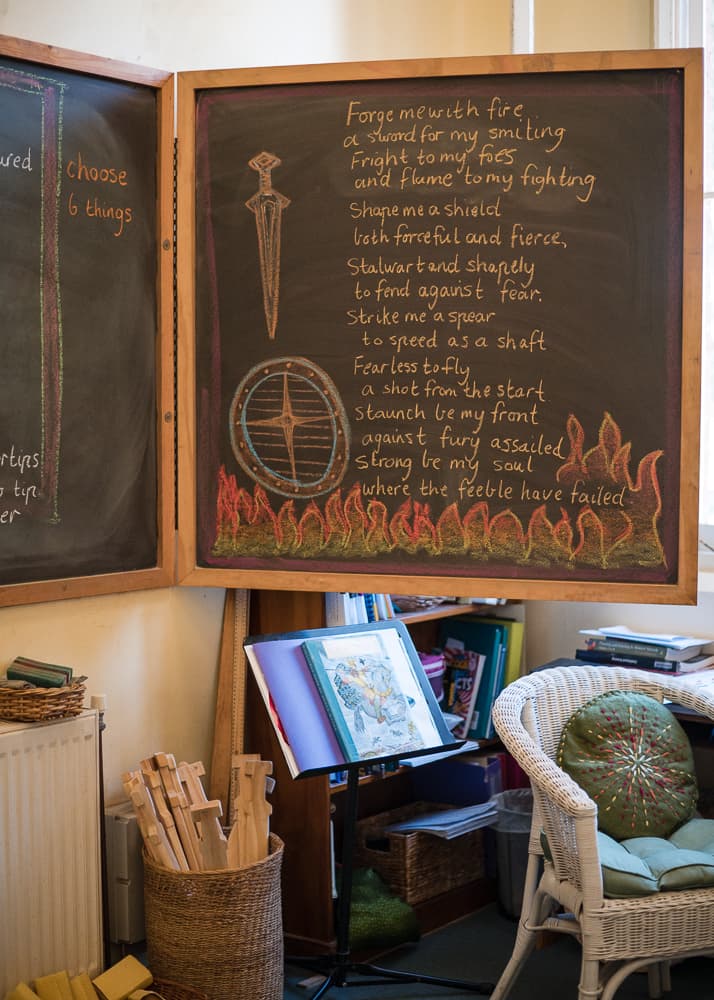 ured
choose
6 things
rtips
tip
er
Forge me with fire
a sword for my smiting
Fright to my foes
and flame to my fighting
Shape me a shield
both forceful and fierce,
Stalwart and shapely
to fend against fear.
Strike me a spear
to speed as a shaft
Fearless to fly
a shot from the start
staunch be my front
against fury assailed
Strong be my soul
where the feeble have failed